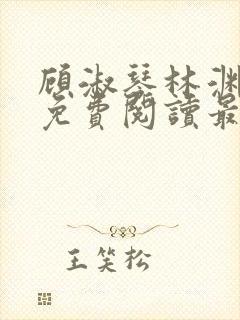 顾淑琴林渊
免費閱讀最
王笑松